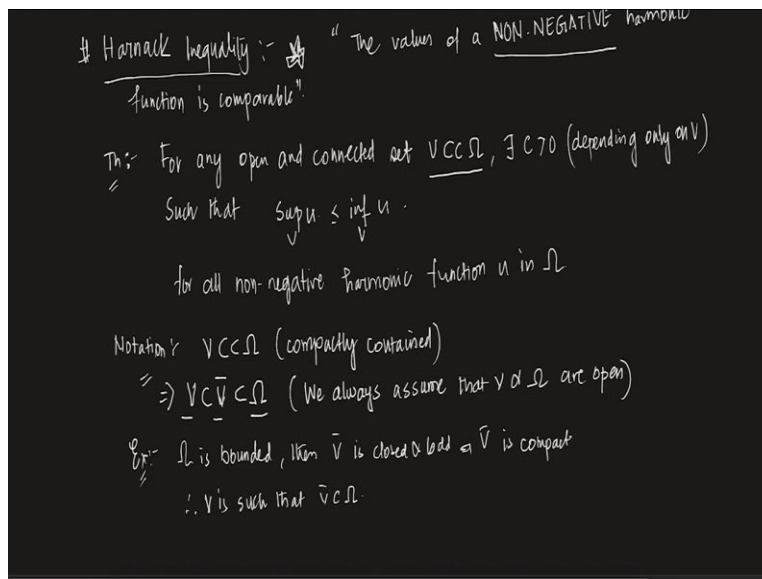 # Harnack Inequality :- "The values of a NON-NEGATIVE harmonic
function is comparable".
Th:- For any open and connected set V⊂⊂Ω, ∃ C>0 (depending only on V)
Such that sup u ≤ inf u .
V V
for all non-negative harmonic function u in Ω
Notation:- V⊂⊂Ω (compactly contained)
=) V⊂V̄⊂Ω (We always assume that V & Ω are open)
Ex:- Ω is bounded, then V̄ is closed & bdd V̄ is compact
∴ V is such that V̄⊂Ω.